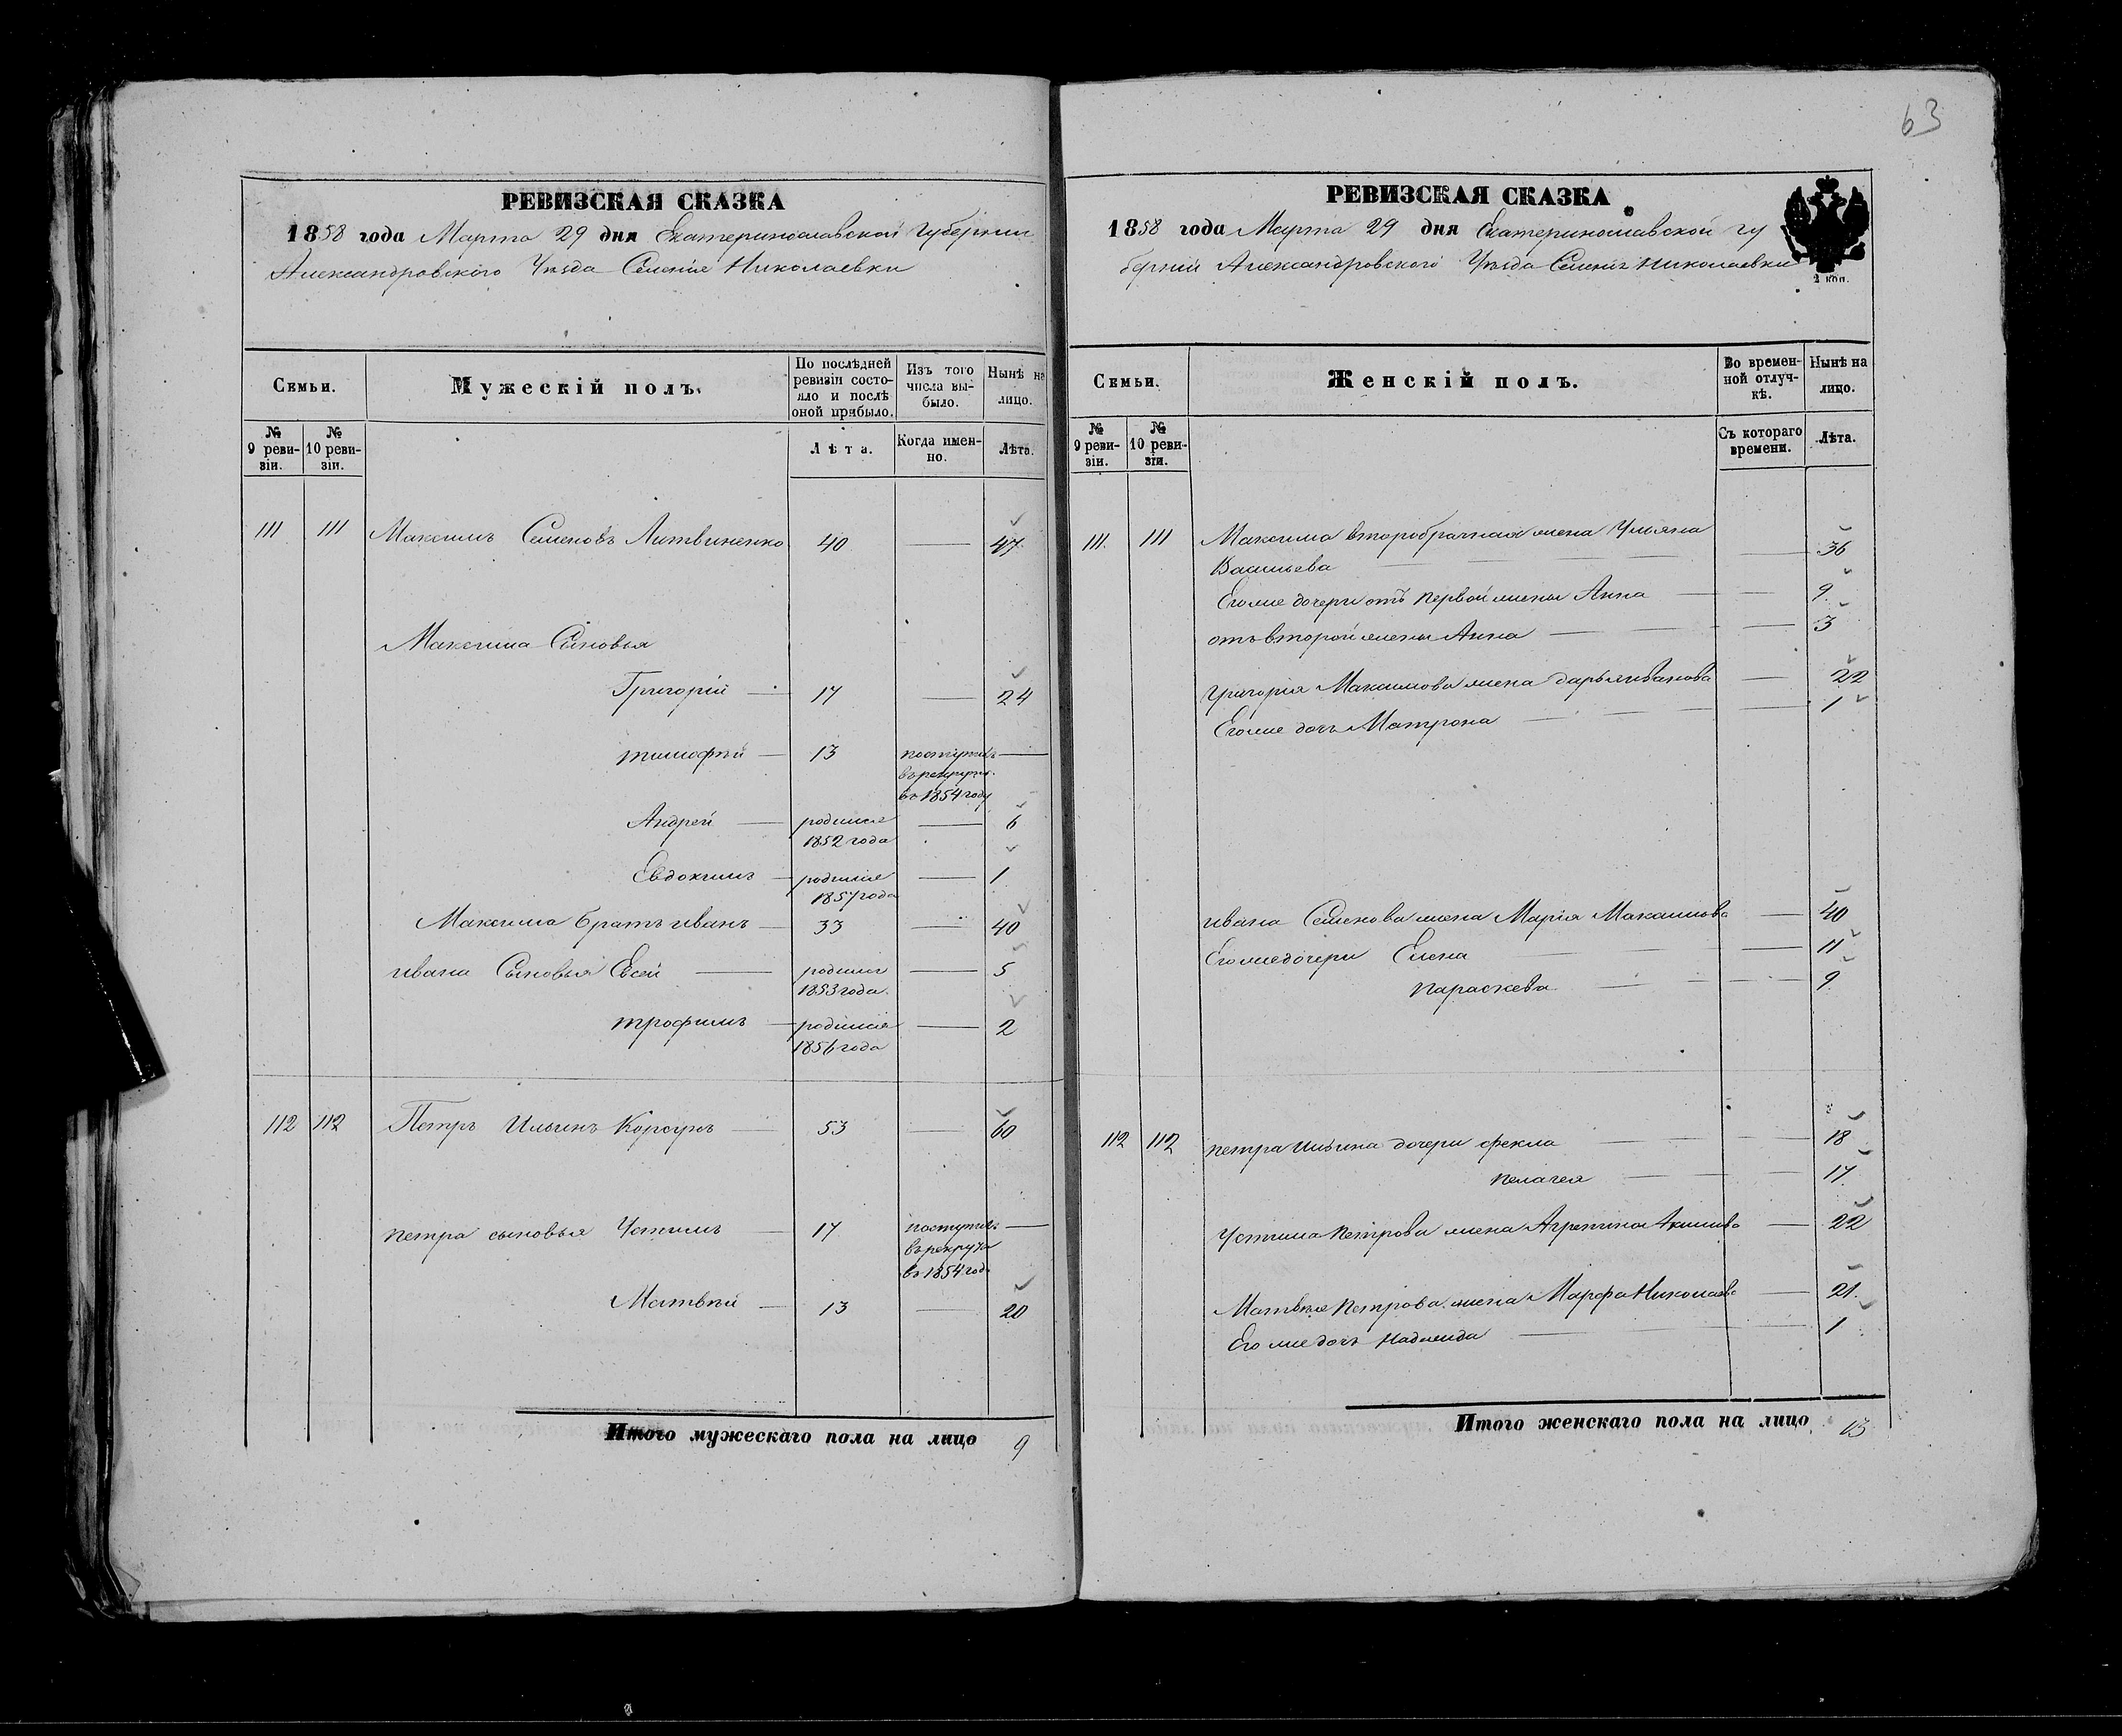 63
РЕВИЗСКАЯ СКАЗКА
1858 года Марта 29 дня Екатеринославской Губернии
Александровского Уѣзда Селенія Николаевки
Семьи.
Мужескій полъ.
По послѣдней
ревизіи состо-
яло и послѣ
оной прибыло.
Изъ того
числа вы-
было.
Нынѣ на
лицо.
№
9 реви-
зіи.
№
10 реви-
зіи.
Лѣта.
Когда имен-
но.
Лѣта.
111 111 Максимъ Семеновъ Литвиненко 40 47
Максима Сыновья
Григорій 17 24
тимофѣй 13 поступилъ
въ рекруты
въ 1854 году
Андрей родился 6
1852 года
Евдокимъ родился 1
1857 года
Максима братъ иванъ 33 40
ивана Сыновья Евсей родился 5
1853 года
трофимъ родился 2
1856 года
112 112 Петръ Ильинъ Корсунъ 53 60
петра сыновья Устимъ 17 поступилъ
въ рекрута
въ 1854 год
Матвѣй 13 20
Итого мужескаго пола на лицо 9
РЕВИЗСКАЯ СКАЗКА
1858 года Марта 29 дня Екатеринославской гу
берніи Александровского Уѣзда Селенія Николаевки
2 коп.
Семьи.
Женскій полъ.
Во времен-
ной отлуч-
кѣ.
Нынѣ на
лицо.
№
9 реви-
зіи.
№
10 реви-
зіи.
Съ котораго
времени.
Лѣта.
111 111 Максима второбрачная жена Ульяна
Васильева 36
Егоже дочери отъ первой жены Анна 9
отъ второй жены Анна 3
григорія Максимова жена дарья иванова 22
Егоже дочь Матрона 1
ивана Семенова жена Марія Максимова 40
Егоже дочери Елена 11
параскева 9
112 112 петра Ильина дочери фекла 18
пелагея 17
Устима петрова жена Агрепина Акимова 22
Матвѣя петрова жена Марфа Николаева 21
Его же дочь надежда 1
Итого женскаго пола на лицо 13